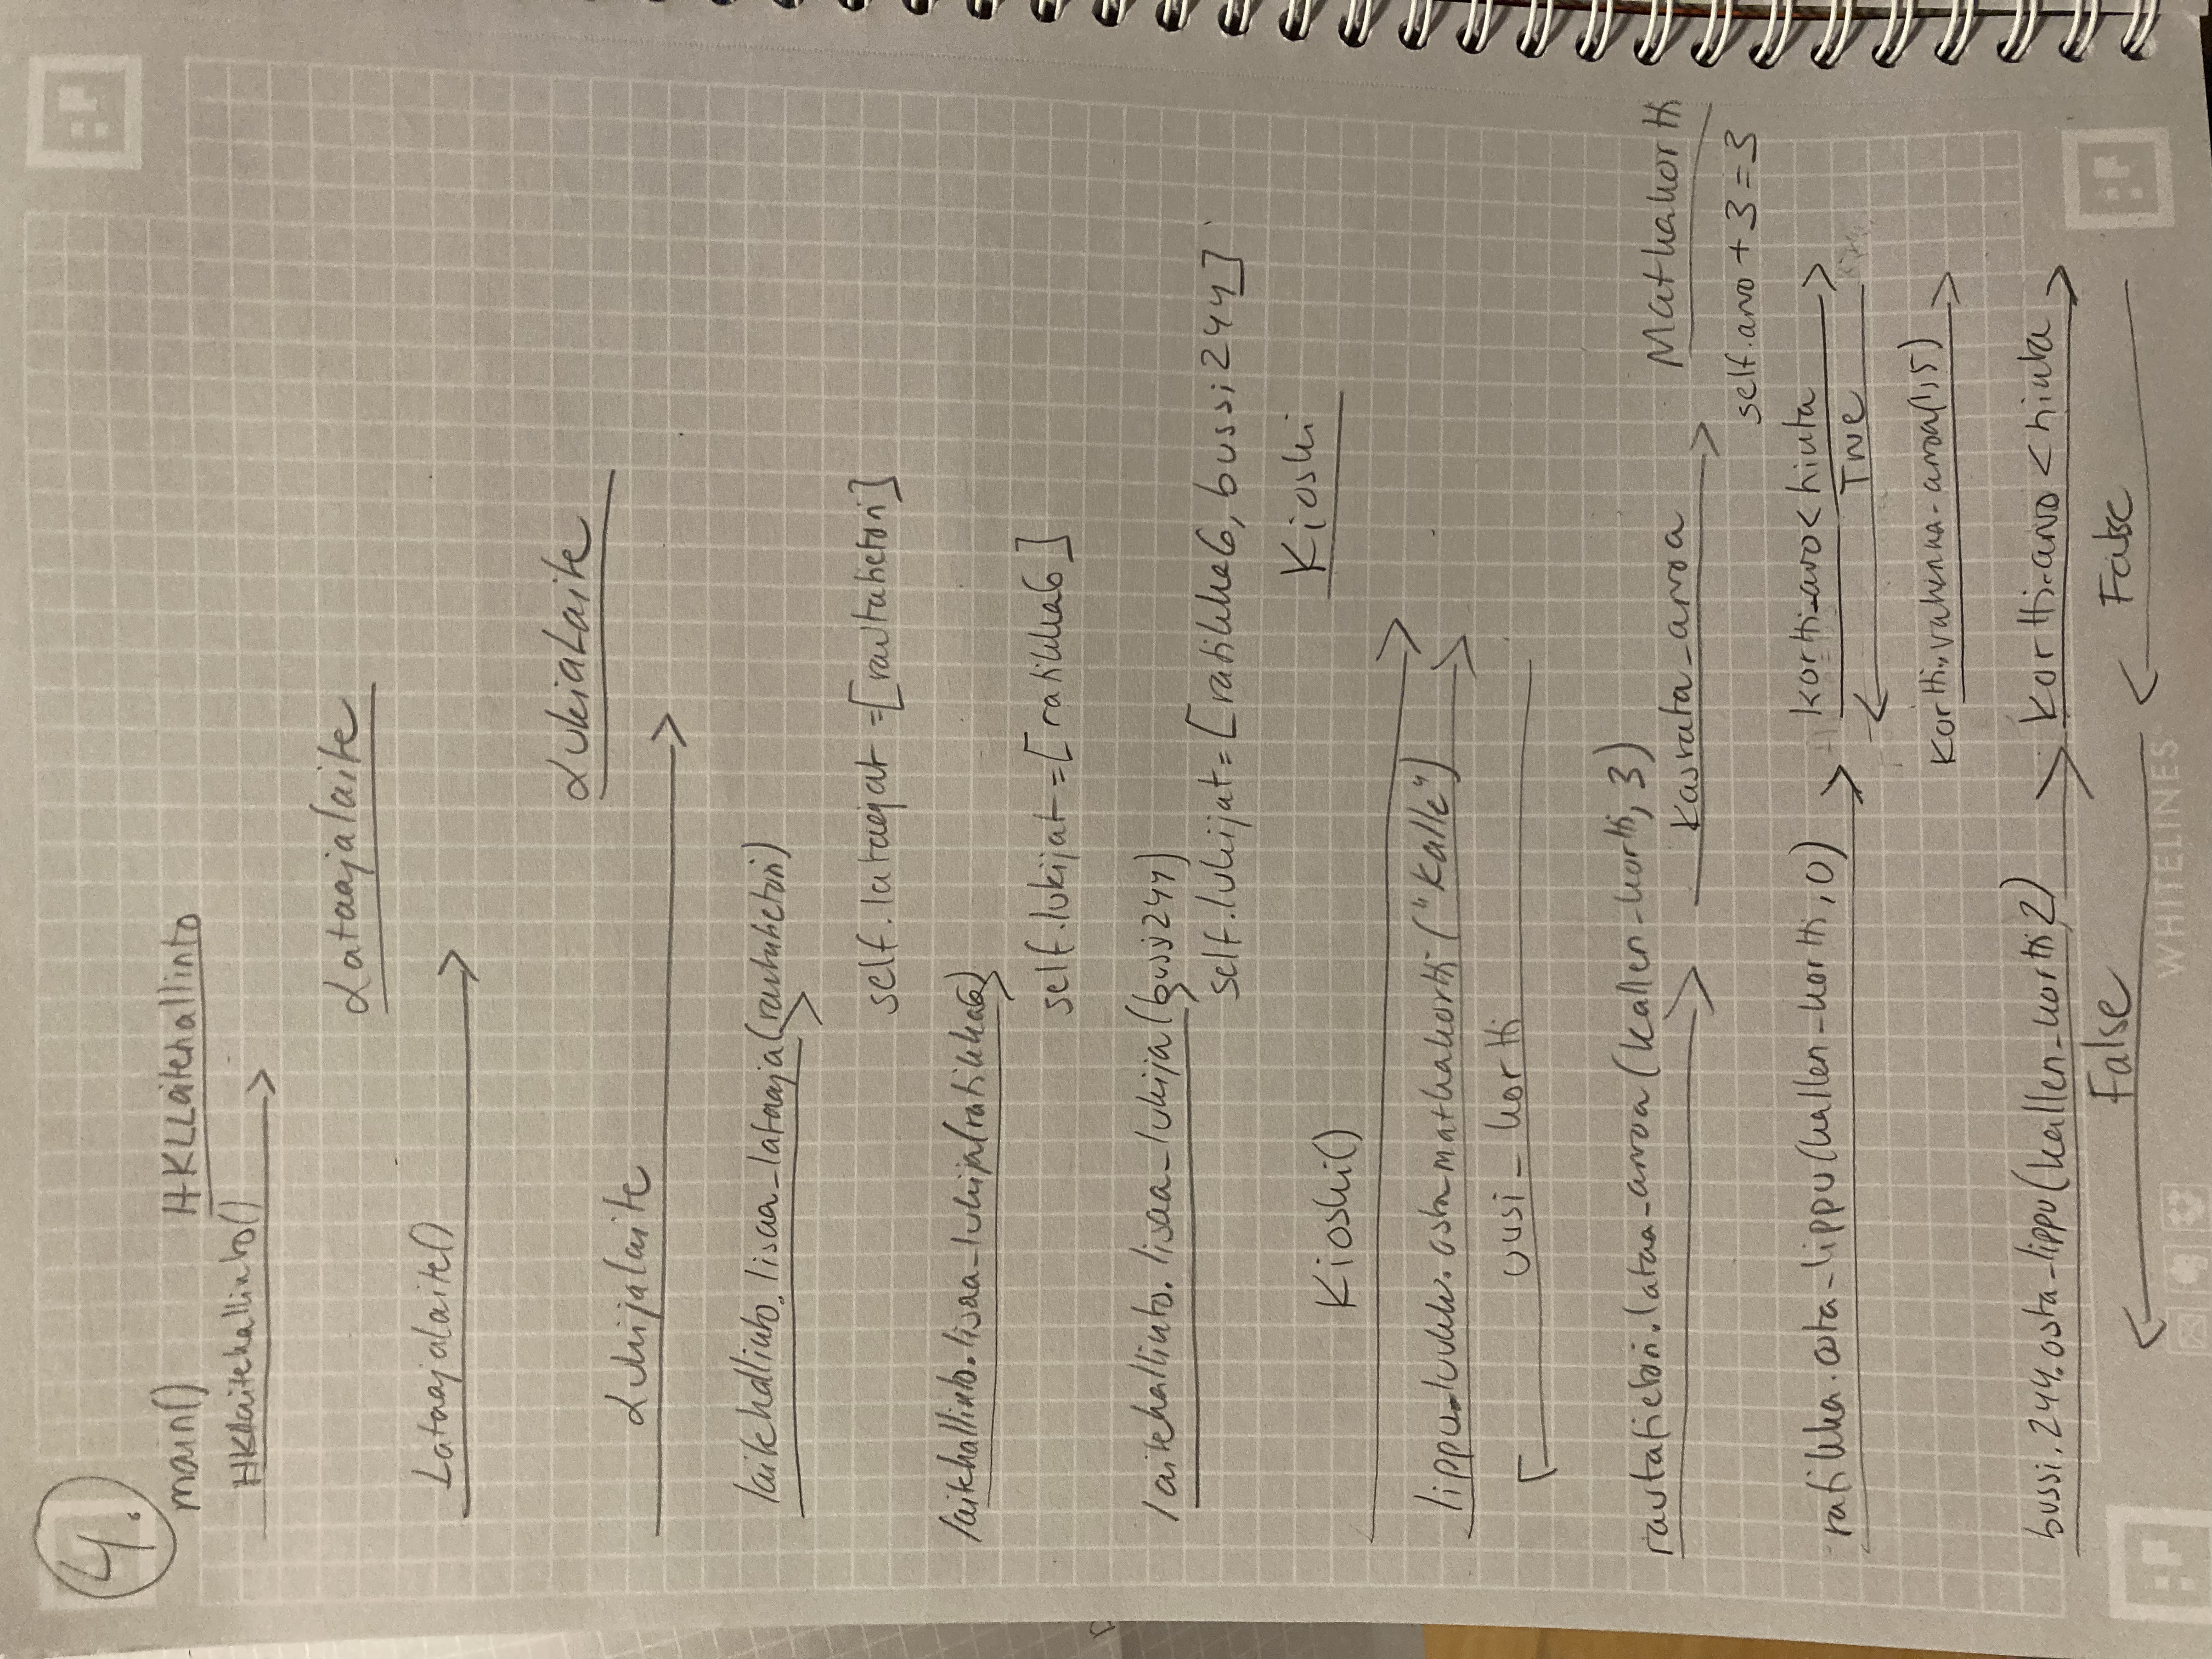 4.
main() HKLLaitehallinto
HKLlaitehallinto()
Lataajalaite
Lataajalaite()
LukiaLaite
Lukijalaite
laitehallinto.lisaa_lataaja(rautatietori)
self.lataajat =[rautatietori]
laitehallinto.lisaa_lukija(ratikka6)
self.lukijat=[ratikka6]
laitehallinto.lisaa_lukija(bussi244)
self.lukijat=[ratikka6, bussi244]
Kioski
Kioski()
lippu_luukku.osta_matkakortti("Kalle")
uusi_kortti
rautatietori.lataa_arvoa(kallen_kortti, 3)
Kasvata_arvoa Matkakortti
self.arvo + 3 = 3
ratikka.osta_lippu(kallen_kortti, 0) kortti.arvo < hinta
True
kortti.vahenna_arvoa(1,5)
bussi.244.osta_lippu(kallen_kortti 2) kortti.arvo < hinta
False False
WHITELINES